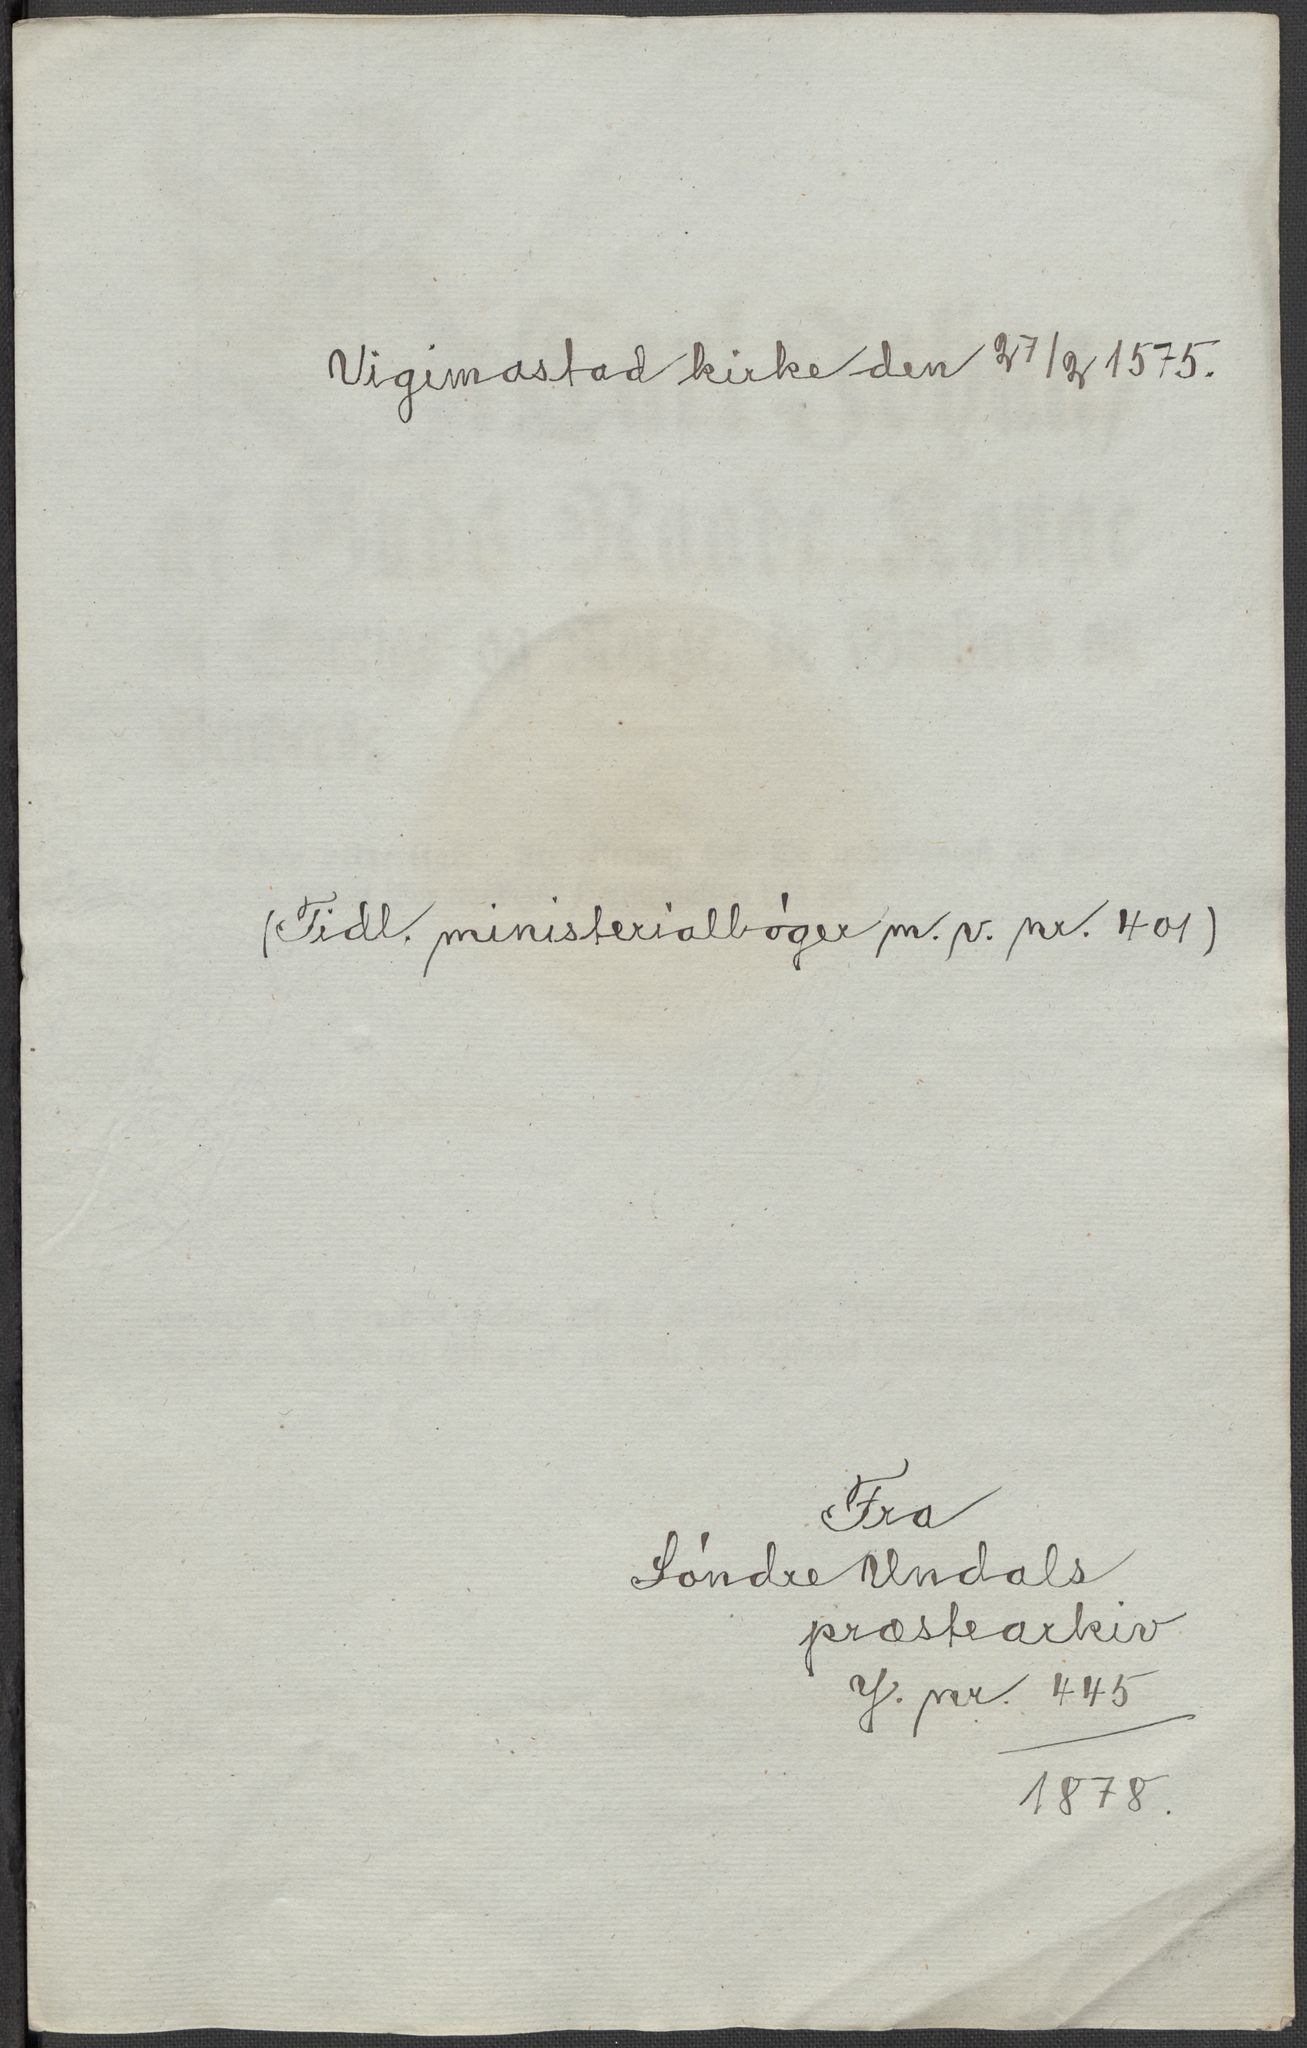 Vigimostad kirke den 27/2 1575.
(Tidl. ministerialbóger m. v. nr. 401)
Fra
Söndre Undals
præstearkiv
J. nr. 445
1878.